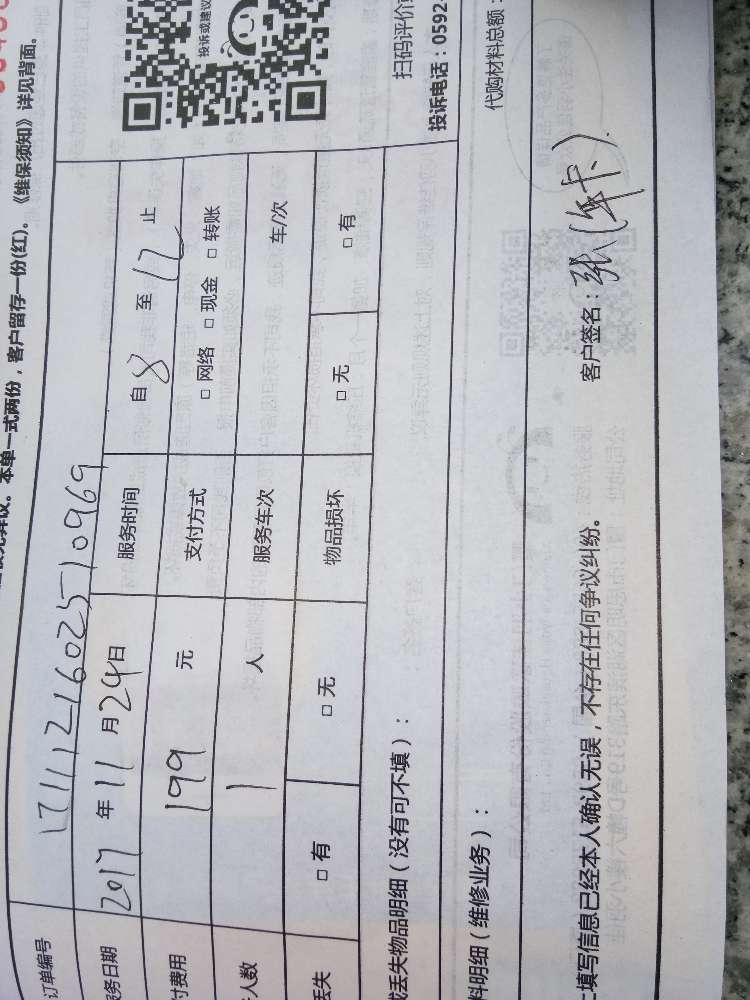 本单一式两份，客户留存一份(红)。《维保须知》详见背面。
订单编号 17111216025710969
务日期 2017 年 11 月 24 日 服务时间 自 8 至 12 止
付费用 199 元 支付方式 □ 网络 □ 现金 □ 转账
人数 1 人 服务车次 车/次
丢失 □ 有 □ 无 物品损坏 □ 无 □ 有
投诉或建议
扫码评价
投诉电话：0592-
丢失物品明细（没有可不填）：
料明细（维修业务）：
代购材料总额：
填写信息已经本人确认无误，不存在任何争议纠纷。
客户签名：张(年卡).